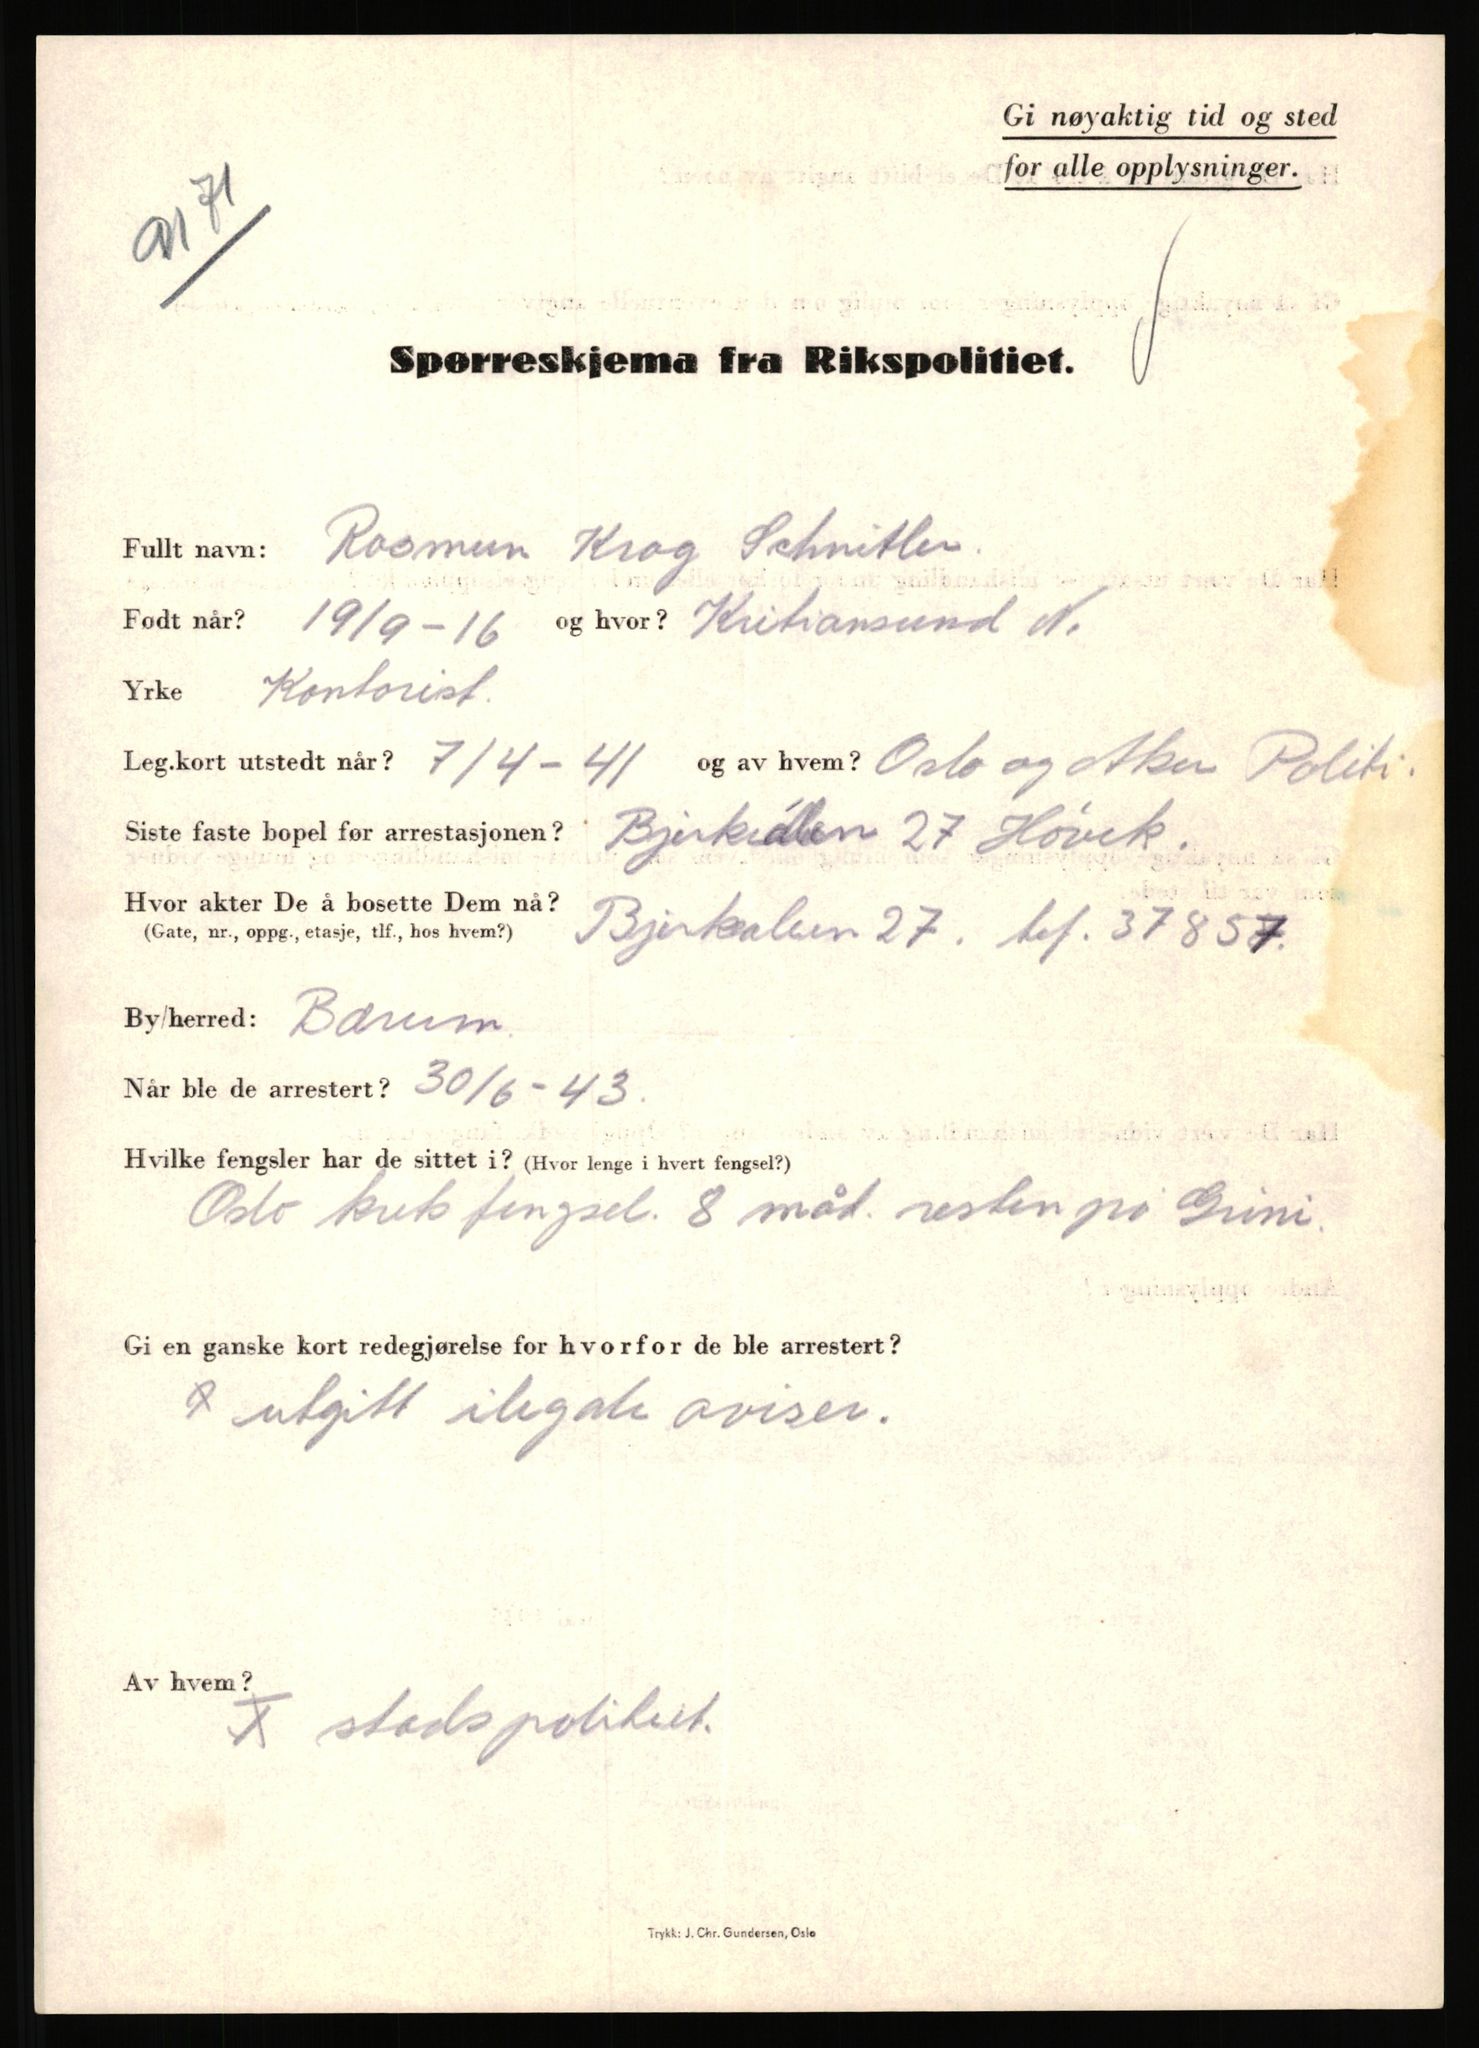 Gi nøyaktig tid og sted
for alle opplysninger.
71
Spørreskjema fra Rikspolitiet.
Fullt navn: Rasmun Krag Schnitler.
Født når? 19/9-16 og hvor? Kritiansund N.
Yrke Kontorist.
Leg.kort utstedt når? 7/4-41 og av hvem? Oslo og Aker Politi.
Siste faste bopel før arrestasjonen? Bjerkealleen 27 Hövik.
Hvor akter De å bosette Dem nå?
(Gate, nr., oppg., etasje, tlf., hos hvem?) Bjerkaleen 27. tef. 37857.
By/herred: Bærum.
Når ble de arrestert? 30/6-43.
Hvilke fengsler har de sittet i? (Hvor lenge i hvert fengsel?)
Oslo krets fengsel. 8 måd. resten på Grini.
Gi en ganske kort redegjørelse for hvorfor de ble arrestert?
x utgitt ilegale aviser.
Av hvem?
X stadspolitiet.
Trykk: J. Chr. Gundersen, Oslo